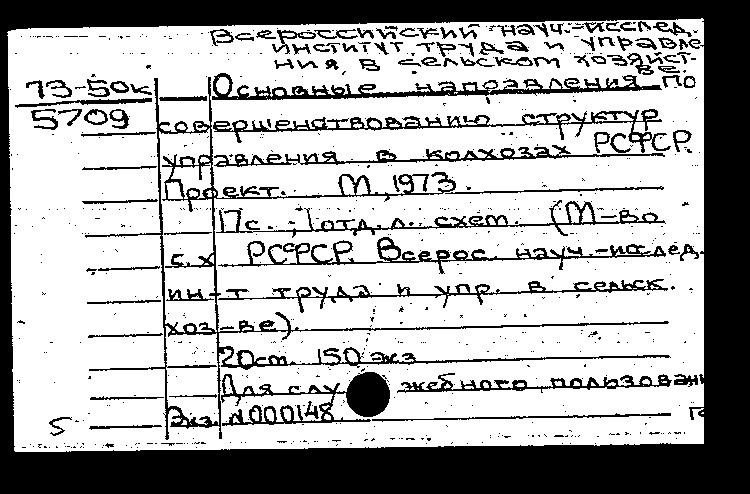 Всероссийский науч.-исслед.
институт труда и управле-
ния в сельском хозяйст-
ве.
73-50к
5709
Основные направления по
совершенствованию структур
управления в колхозах РСФСР.
Проект. М., 1973.
17с.; 1 отд. л. схем. (М-во
с.х РСФСР. Всерос. науч.-исслед.
ин-т труда и упр. в сельск.
хоз-ве).
20см. 150 экз
Для служебного пользован
Экз. N000148
5